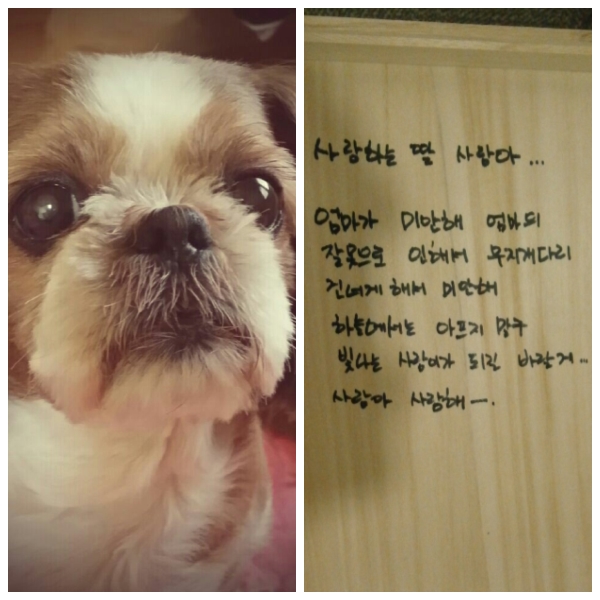 사랑하는 딸 사랑아...
엄마가 미안해 엄마의
잘못으로 인해서 무지개다리
건너게 해서 미안해
하늘에서는 아프지 말구
빛나는 사랑이가 되길 바랄게...
사랑아 사랑해ㅡ.